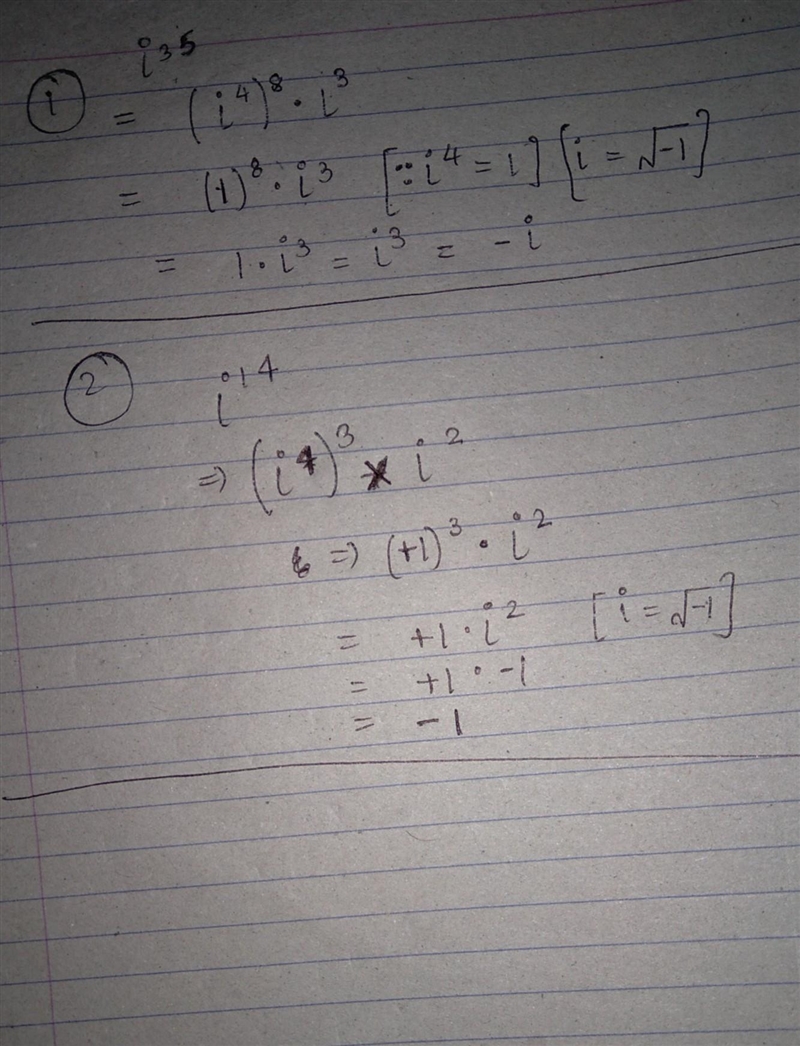 i³⁵
① = (i⁴)⁸ · i³
= (1)⁸ · i³ [∵ i⁴ = 1] [i = √-1]
= 1 · i³ = i³ = -i
② i¹⁴
⇒ (i⁴)³ × i²
⇒ (+1)³ · i²
= +1 · i² [i = √-1]
= +1 · -1
= -1